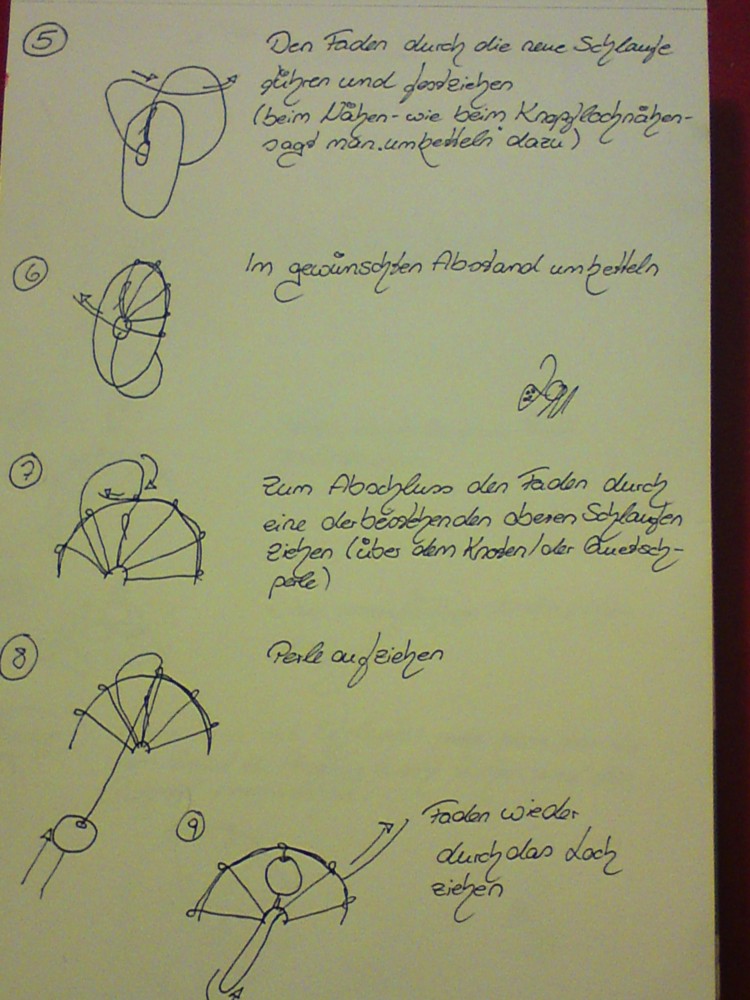 5
Den Faden durch die neue Schlaufe
führen und festziehen
(beim Nähen - wie beim Knopflochnähen -
sagt man "umbetteln" dazu)
6
Im gewünschten Abstand umbetteln
7
Zum Abschluss den Faden durch
eine der bestehenden oberen Schlaufen
ziehen (über dem Knoten/der Quetsch-
perle)
8
Perle aufziehen
9
Faden wieder
durch das Loch
ziehen